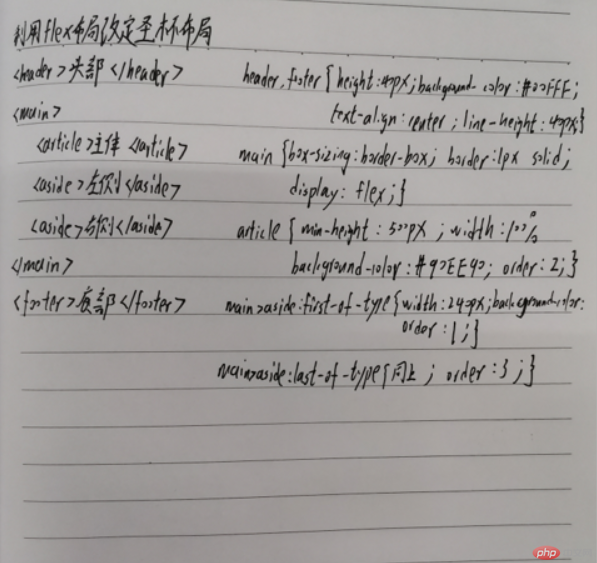 利用flex布局改定圣杯布局
<header>头部</header> header,footer{height:40px;background-color:#00FFFF;
<main> text-align:center;line-height:40px;}
<article>主体</article> main{box-sizing:border-box; border:1px solid;
<aside>左侧</aside> display: flex;}
<aside>右侧</aside> article{min-height:500px;width:100%
</main> background-color:#90EE90; order:2;}
<footer>底部</footer> main>aside:first-of-type{width:240px;background-color:
order:1;}
main>aside:last-of-type{同上; order:3;}
php